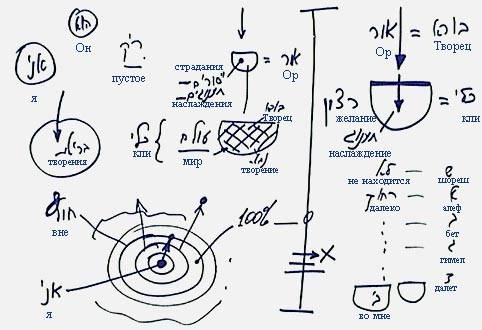 הוא
Он
אני
я
ריק
пустое
страдания
יסורים
תענוגים
наслаждения
= אור
Ор
אור = בורא
Ор Творец
רצון
желание
= כלי
кли
תענוג
наслаждение
творения
כלי { עולם
кли мир
בורא
Творец
творение
не находится шореш
רחוק א
далеко алеф
ב
бет
ג
гимел
ד
далет
во мне
חוץ
вне
100%
X
אני
я